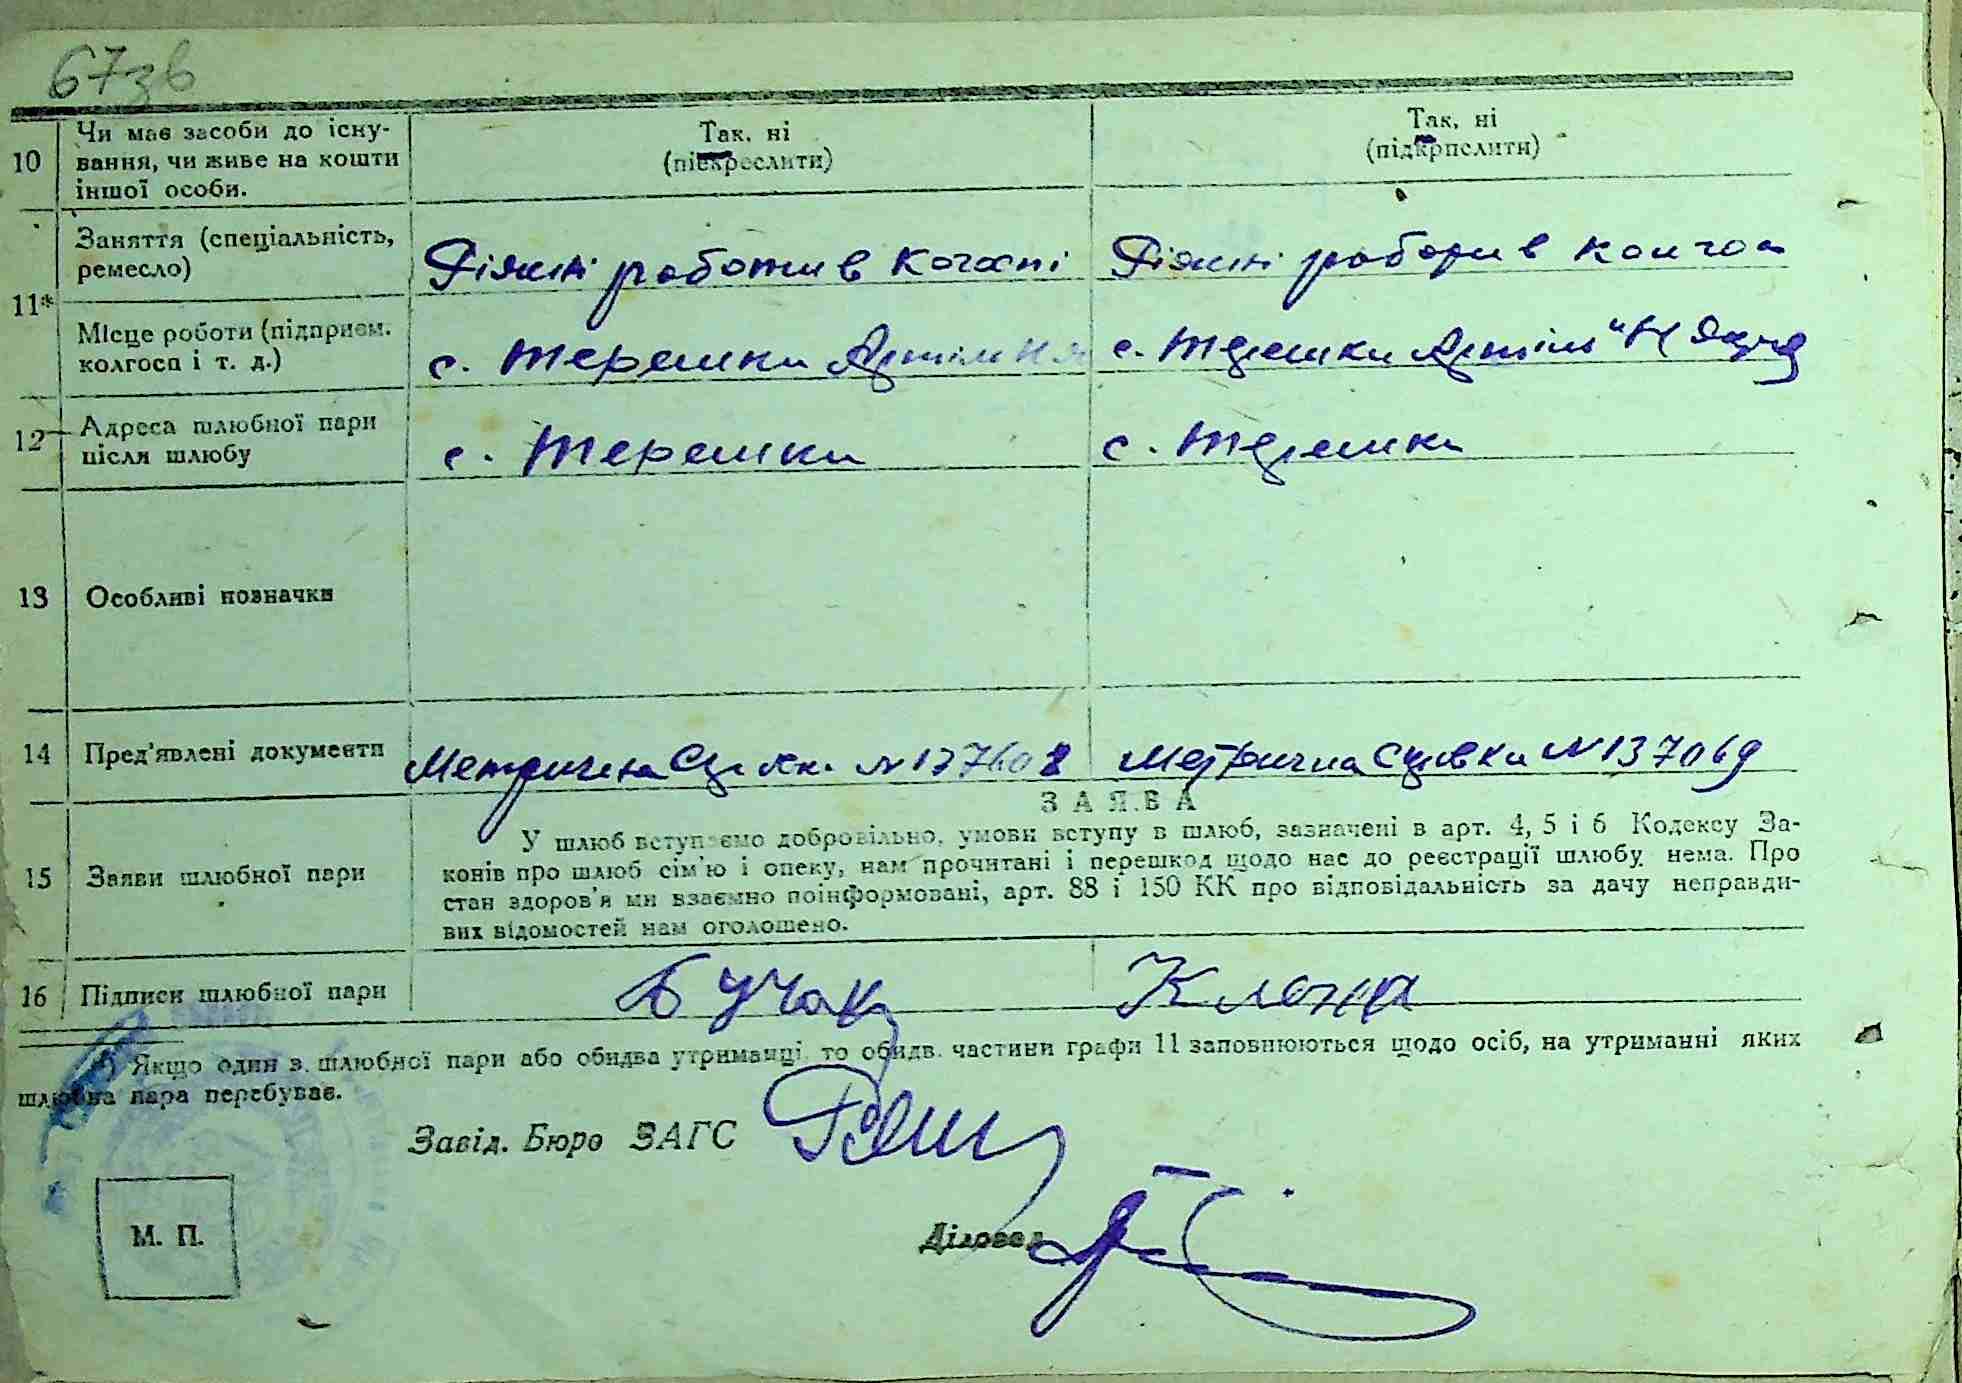 67зв
10 Чи має засоби до існу-
вання, чи живе на кошти
іншої особи.
Так, ні
(підкреслити)
Так, ні
(підкрпслити)
11*
Заняття (спеціальність,
ремесло)
Ріжні роботи в
Ріжні роботи в
Місце роботи (підприєм.
колгосп і т. д.)
с. Терешки Артіль
с. Терешки Артіль
12 Адреса шлюбної пари
після шлюбу
с. Терешки
с. Терешки
13 Особливі позначки
14 Пред’явлені документи
Метрична
Метрична N 137069
ЗАЯВА
15 Заяви шлюбної пари
У шлюб вступаємо добровільно, умови вступу в шлюб, зазначені в арт. 4, 5 і 6 Кодексу За-
конів про шлюб сім’ю і опеку, нам прочитані і перешкод щодо нас до реєстрації шлюбу нема. Про
стан здоров’я ми взаємно поінформовані, арт. 88 і 150 КК про відповідальність за дачу неправди-
вих відомостей нам оголошено.
16 Підписи шлюбної пари
Бучак
*) Якщо один з шлюбної пари або обидва утриманці, то обидв. частини графи 11 заповнюються щодо осіб, на утриманні яких
шлюбна пара перебуває.
Завід. Бюро ЗАГС
Діловод
М. П.